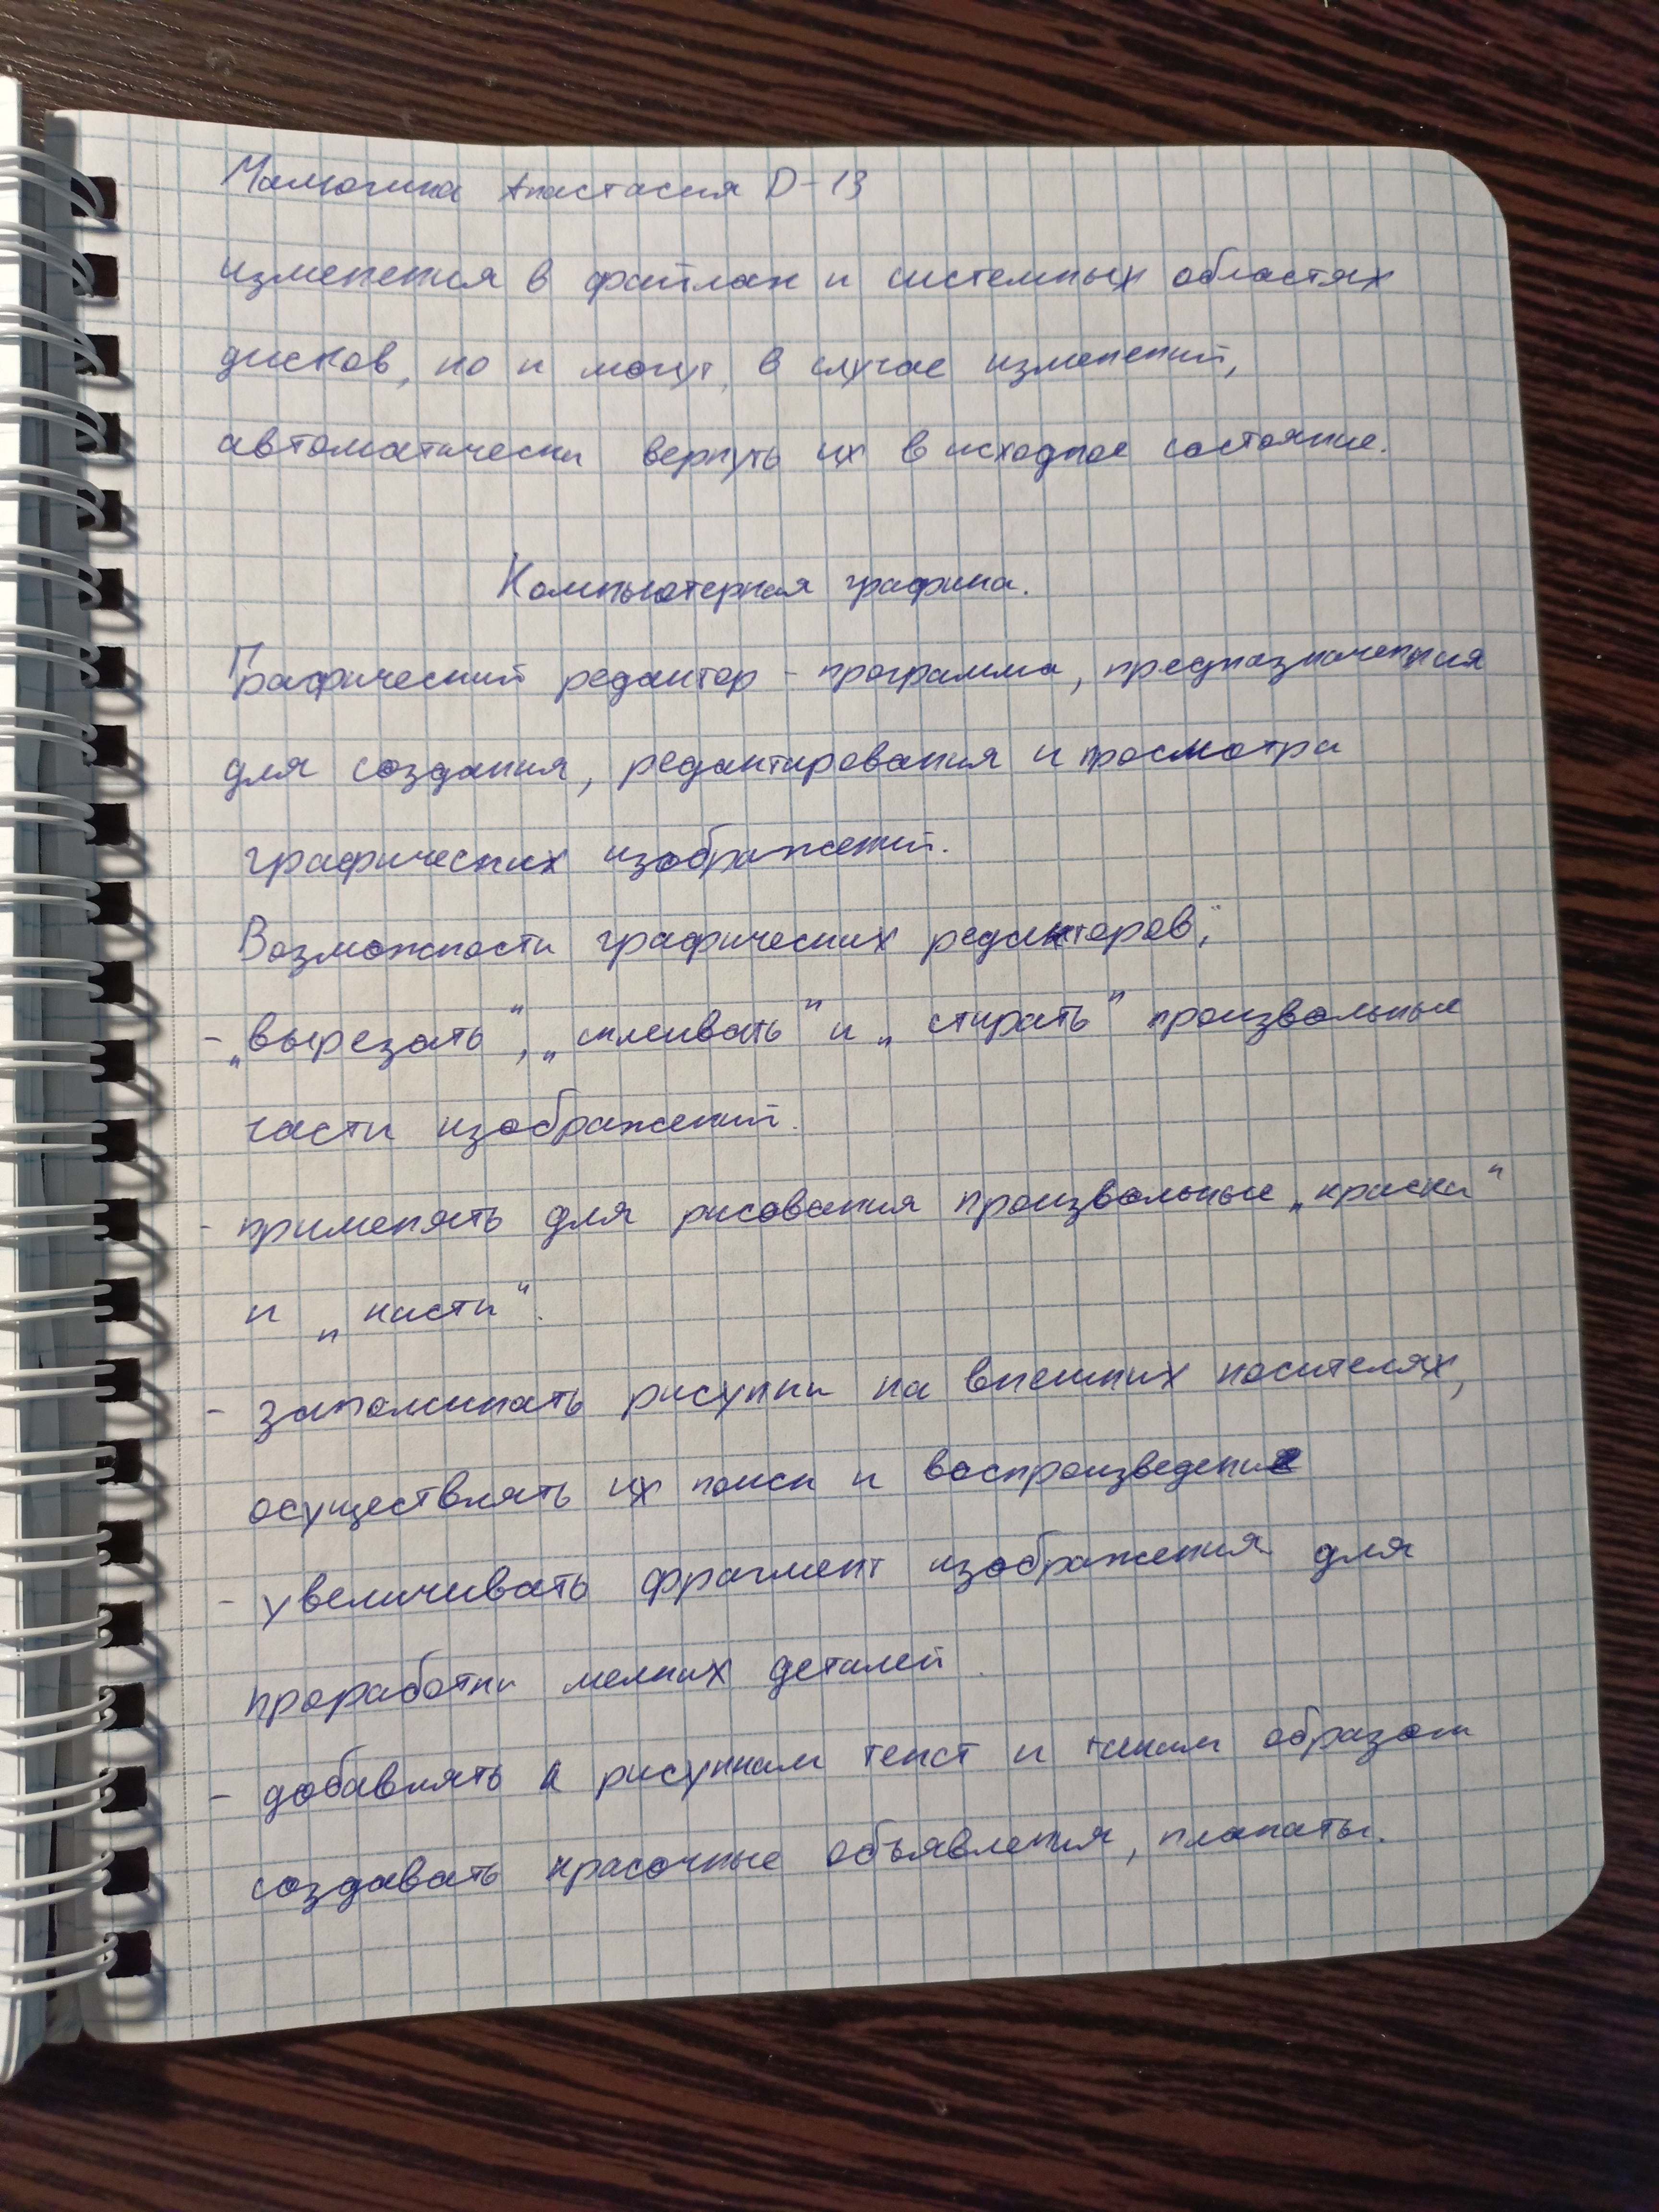 Малюгина Анастасия D-13
изменения в файлах и системных областях
дисков, но и могут, в случае изменений,
автоматически вернуть их в исходное состояние.
Компьютерная графика.
Графический редактор - программа, предназначенная
для создания, редактирования и просмотра
графических изображений.
Возможности графических редакторов:
- „вырезать", „склеивать" и „стирать" произвольные
части изображений.
- применять для рисования произвольные „краски"
и „кисти".
- запоминать рисунки на внешних носителях,
осуществлять их поиск и воспроизведение
- увеличивать фрагмент изображения для
проработки мелких деталей.
- добавлять к рисункам текст и таким образом
создавать красочные объявления, плакаты.